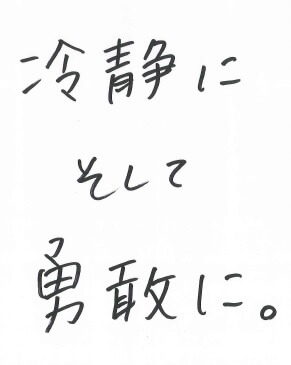 冷静に
そして
勇敢に。